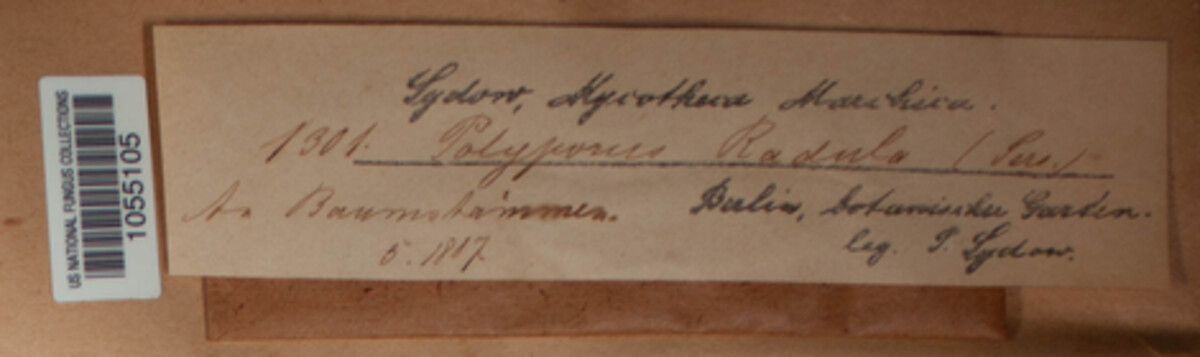 US NATIONAL FUNGUS COLLECTIONS
1055105
Sydow, Mycotheca Marchica.
1301. Polyporus Radula (Pers.)
An Baumstämmen.
Berlin, botanischer Garten.
5. 1887.
leg. P. Sydow.